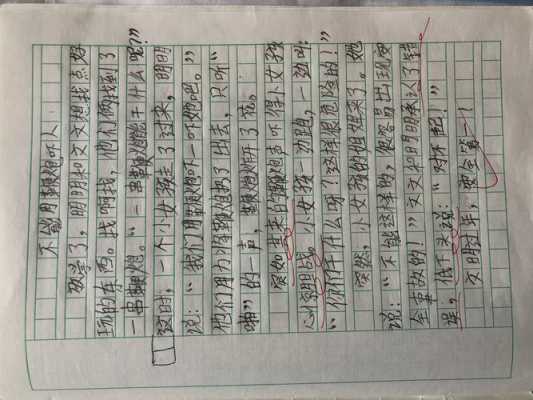 不能用鞭炮吓人
放学了，明明和文文想找点好
玩的东西。找啊找，他们俩找到了
一串鞭炮。“一串鞭炮能干什么呢？”
这时，一个小女孩走了过来，明明
说：“我们用鞭炮吓一吓她吧。”
他们用力将鞭炮扔了出去，只听“
啪”的一声，鞭炮炸开了花。
突如其来的鞭炮声吓得小女孩
心惊胆战。小女孩一边跑，一边叫：
“你们干什么呀？这样很危险的！”
突然，小女孩的姐姐来了。她
说：“不能这样的，很容易出现安
全事故的！”文文和明明承认了错
误，低下头说：“对不起！”
文明过年，安全第一！